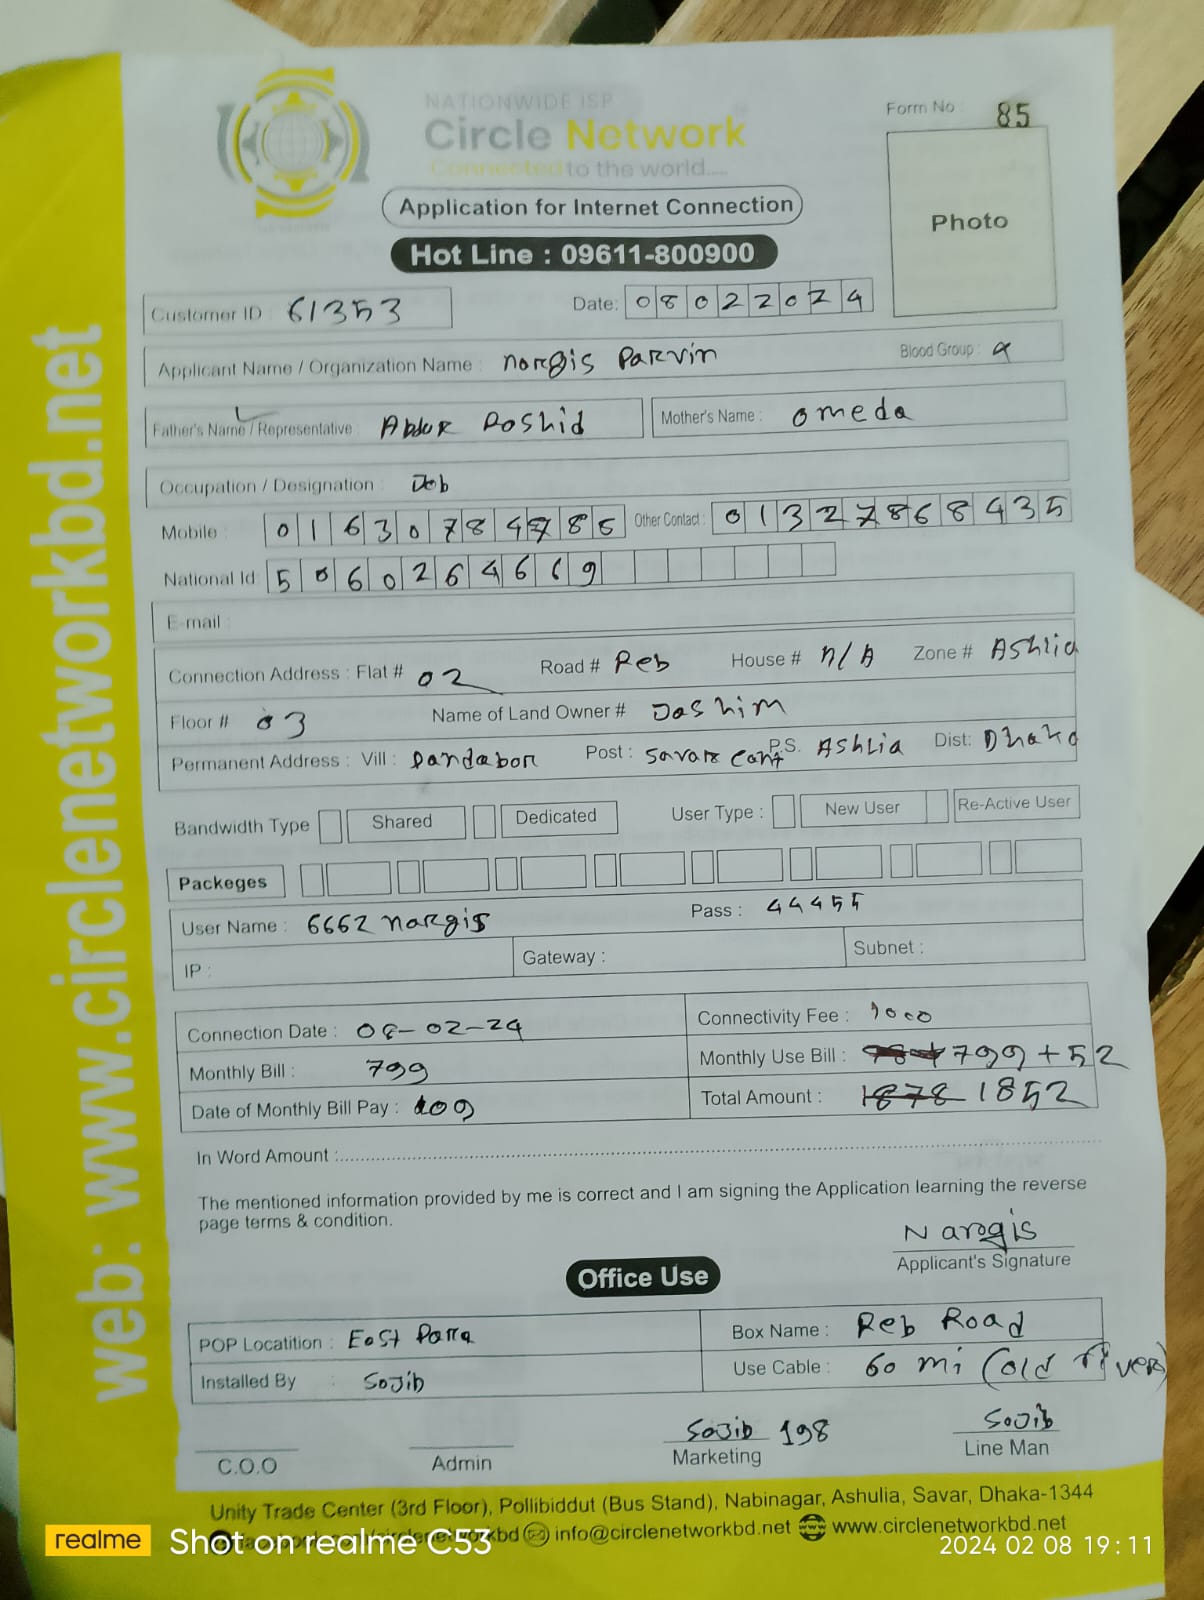 NATIONWIDE ISP
Circle Network
Connected to the world....
Form No : 85
Photo
Application for Internet Connection
Hot Line : 09611-800900
Customer ID : 61353
Date: 08022024
Applicant Name / Organization Name : nargis Parvin
Blood Group :
Father's Name / Representative : Abdur Roshid
Mother's Name : omeda
Occupation / Designation : Job
Mobile : 01630784785
Other Contact : 01327868435
National Id: 5060264669
E-mail :
Connection Address : Flat # 02 Road # Reb House # N/A Zone # Ashlia
Floor # 03 Name of Land Owner # Jashim
Permanent Address : Vill : Dandabor Post : Savar Cant P.S. Ashlia Dist: Dhaka
Bandwidth Type Shared Dedicated User Type : New User Re-Active User
Packeges
User Name : 6662 nargis Pass : 44455
IP : Gateway : Subnet :
Connection Date : 08-02-24 Connectivity Fee : 1000
Monthly Bill : 799 Monthly Use Bill : 799 + 52
Date of Monthly Bill Pay : 09 Total Amount : 1878 1852
In Word Amount :
The mentioned information provided by me is correct and I am signing the Application learning the reverse
page terms & condition.
Narogis
Applicant's Signature
Office Use
POP Locatition : East Parra Box Name : Reb Road
Installed By : Sojib Use Cable : 60 mi (old river)
Sojib 198
Sojib
C.O.O Admin Marketing Line Man
Unity Trade Center (3rd Floor), Pollibiddut (Bus Stand), Nabinagar, Ashulia, Savar, Dhaka-1344
info@circlenetworkbd.net www.circlenetworkbd.net
web: www.circlenetworkbd.net
realme Shot on realme C53
2024 02 08 19:11